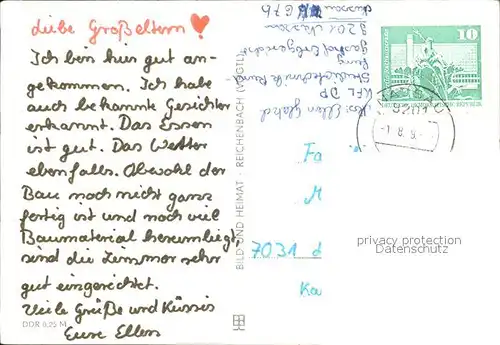 Liebe Großeltern!
Ich bin hier gut an-
gekommen. Ich habe
auch bekannte Gesichter
erkannt. Das Essen
ist gut. Das Wetter
ebenfalls. Obwohl der
Bau noch nicht ganz
fertig ist und noch viel
Baumaterial herumliegt,
sind die Zimmer sehr
gut eingerichtet.
Viele Grüße und Küssis
Eure Ellen
DDR 0,25 M
BILD UND HEIMAT · REICHENBACH (VOGTL)
Abs: Ellen
KFL DP
9201
10
9201
Fa
M
7031
Ka
privacy protection
Datenschutz